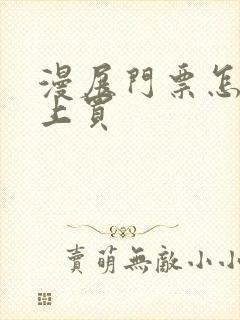 漫展門票怎
上買
賣萌無敵小小